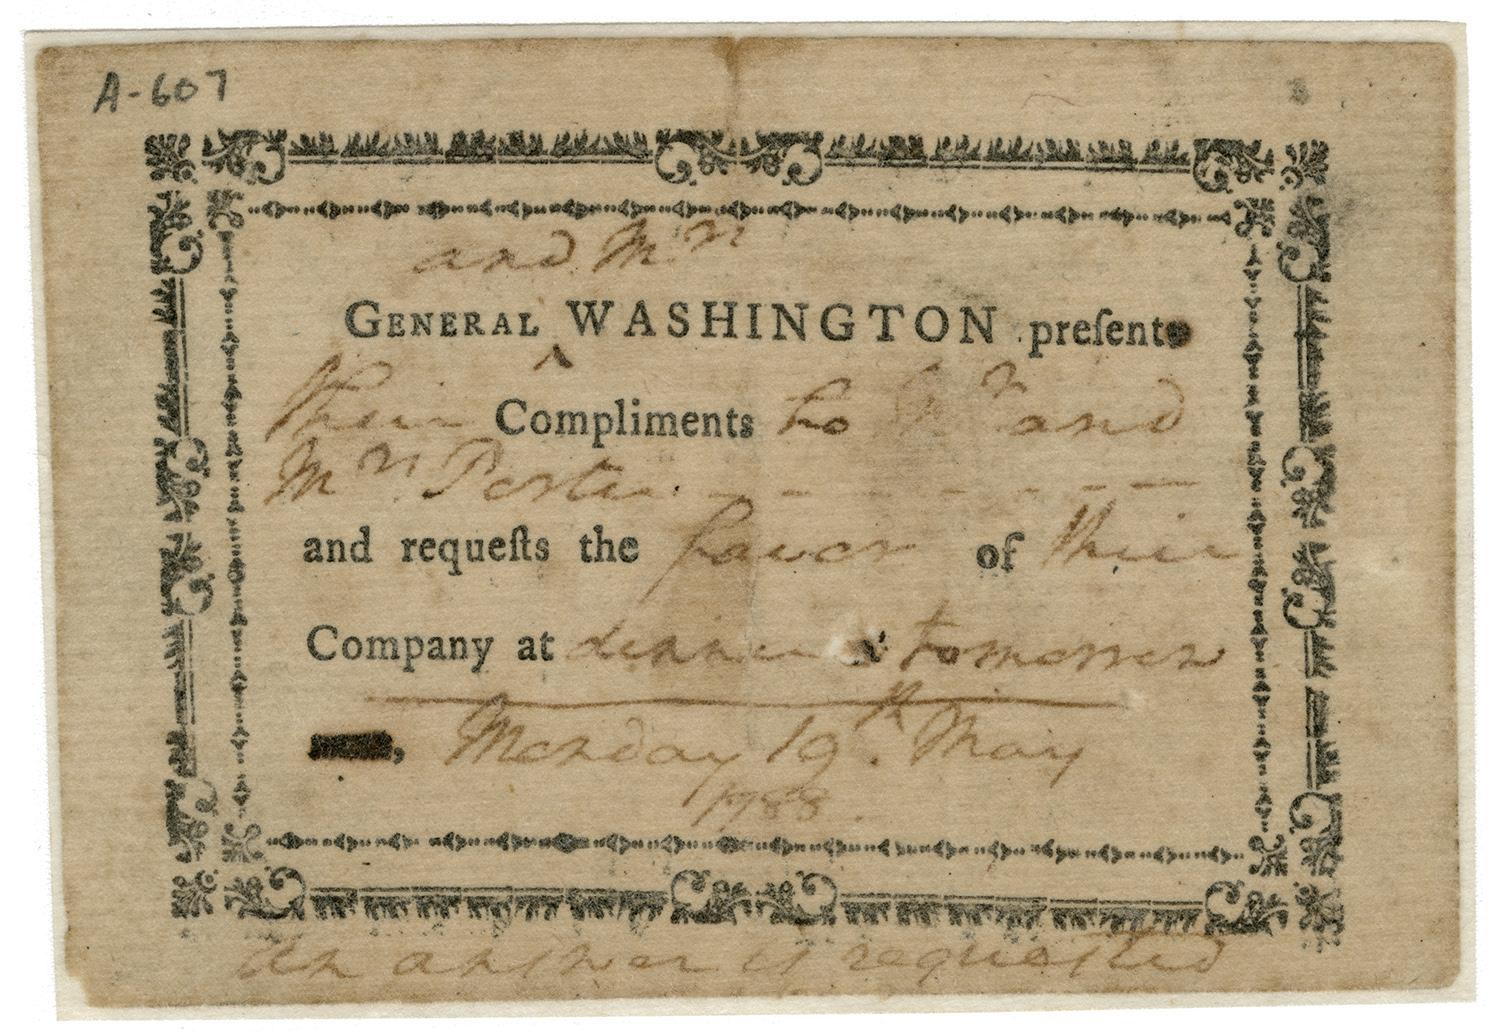 A-607
and Mrs
GENERAL ^ WASHINGTON preſent
their Compliments to Mr and
Mrs Porter - - - - - - -
and requeſts the favor of their
Company at dinner tomorrow
, Monday 19th May
1788.
An answer is requested